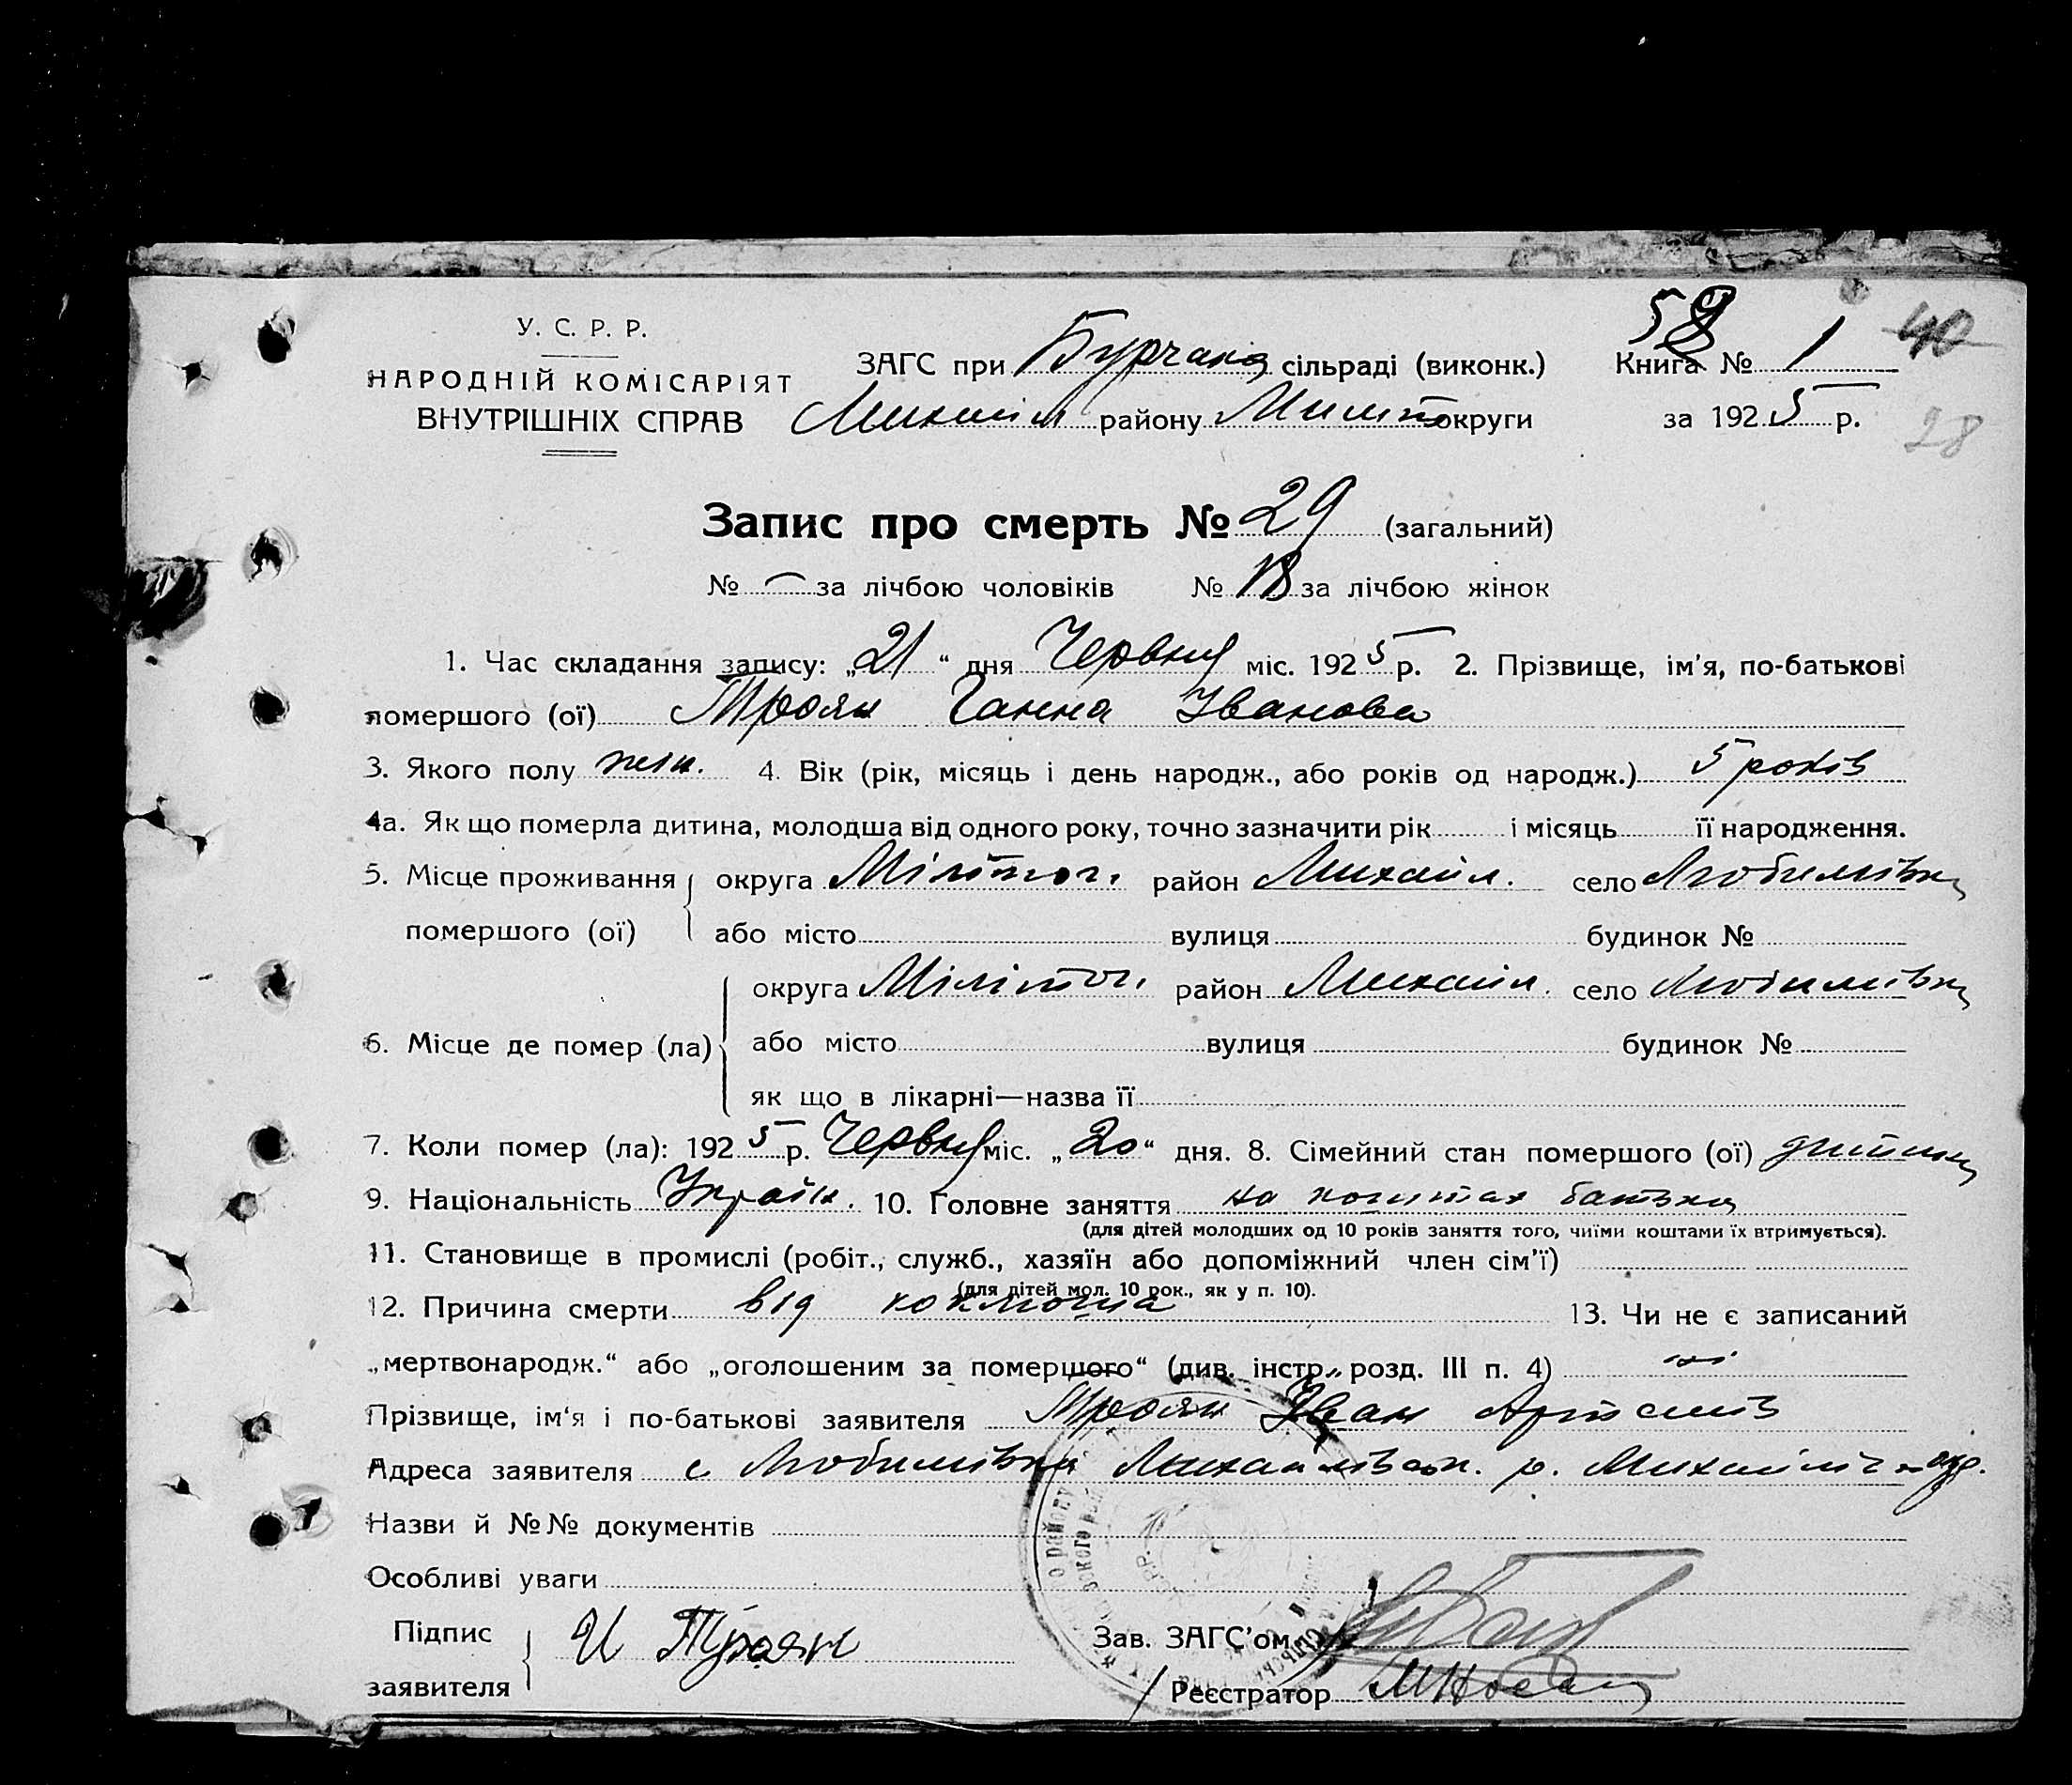 59 40
У. С. Р. Р.
НАРОДНІЙ КОМІСАРІЯТ
ВНУТРІШНІХ СПРАВ
ЗАГС при Бурчак сільраді (виконк.) Книга № 1
Михайл району Миліт округи за 1925 р.
28
Запис про смерть № 29 (загальний)
№ — за лічбою чоловіків № 18 за лічбою жінок
1. Час складання запису: „21“ дня Червня міс. 1925 р. 2. Прізвище, ім'я, по-батькові
помершого (ої) Троян Ганна Іванова
3. Якого полу жін. 4. Вік (рік, місяць і день народж., або років од народж.) 5 років
4а. Як що померла дитина, молодша від одного року, точно зазначити рік і місяць її народження.
5. Місце проживання округа Мілітоп. район Михайл. село Любимівка
помершого (ої) або місто вулиця будинок №
округа Мілітоп. район Михайл. село Любимівка
6. Місце де помер (ла) або місто вулиця будинок №
як що в лікарні—назва її
7. Коли помер (ла): 1925 р. Червня міс. „20“ дня. 8. Сімейний стан помершого (ої) дитина
9. Національність Україн. 10. Головне заняття на коштах батька
(для дітей молодших од 10 років заняття того, чиїми коштами їх втримується).
11. Становище в промислі (робіт., служб., хазяїн або допоміжний член сім'ї)
(для дітей мол. 10 рок., як у п. 10).
12. Причина смерти від коклюша 13. Чи не є записаний
„мертвонародж.“ або „оголошеним за помершого“ (див. інстр., розд. III п. 4) ні
Прізвище, ім'я і по-батькові заявителя Троян Іван Артемів
Адреса заявителя с Любимівка Михайлівськ. р. окр.
Назви й №№ документів
Особливі уваги
Підпис заявителя И Троян
Зав. ЗАГС'ом
Реєстратор